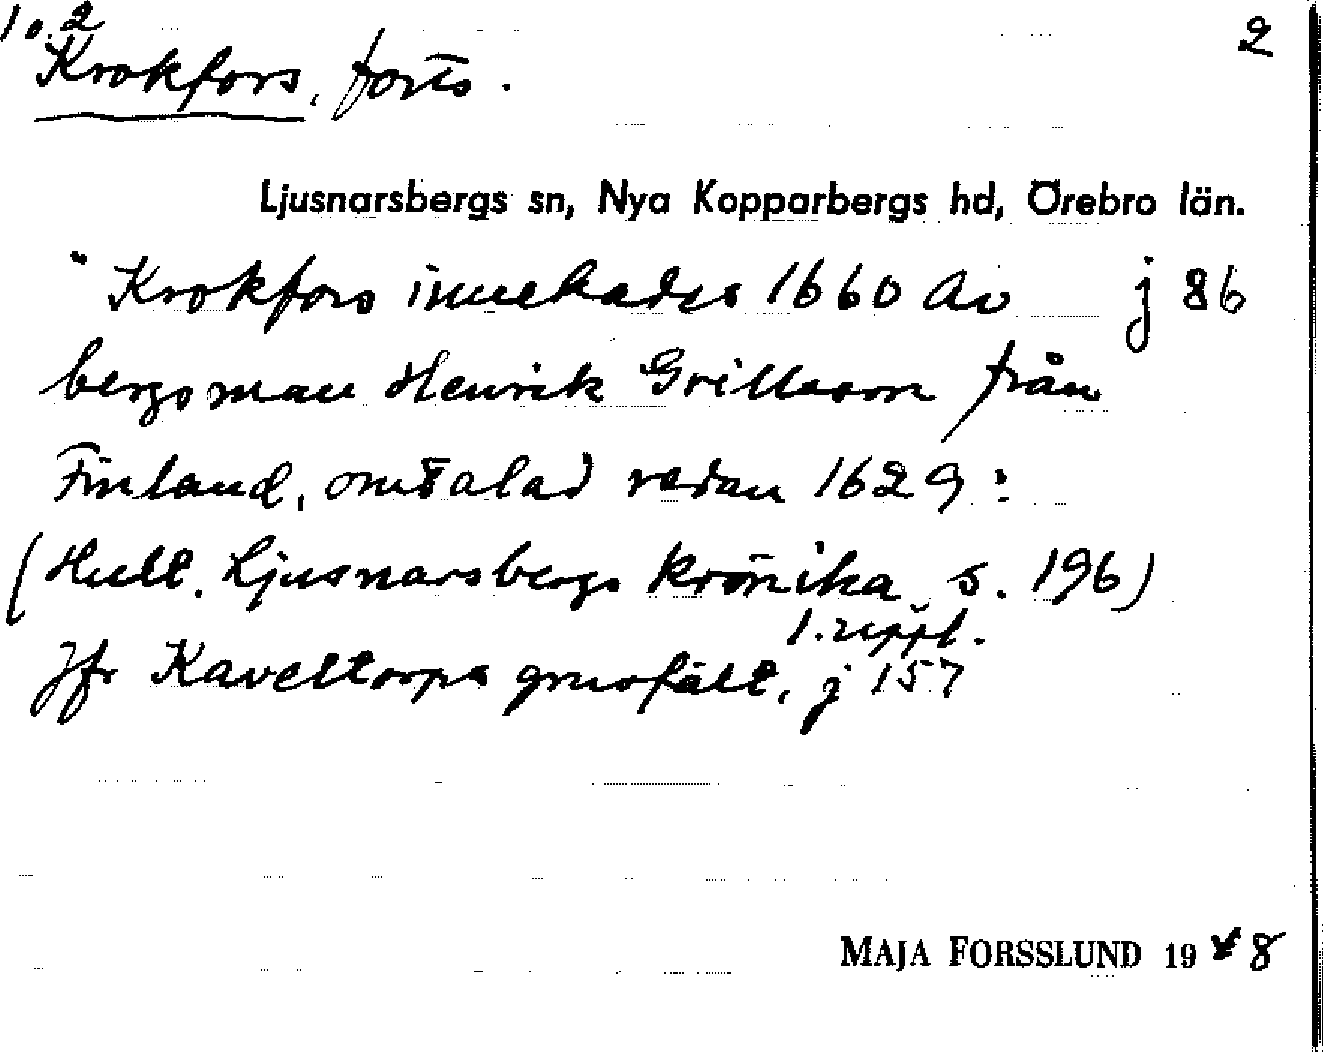 1 o. 2
2
Krokfors, forts.
Ljusnarsbergs sn, Nya Kopparbergs hd, Örebro län.
"Krokfors innehades 1660 av j 86
bergsman Henrik Grillsson från
Finland, omtalad redan 1629:
(Hult. Ljusnarsbergs krönika s. 196)
1. uppl.
Jfr Kaveltorps gruvfält, j 157
MAJA FORSSLUND 1948